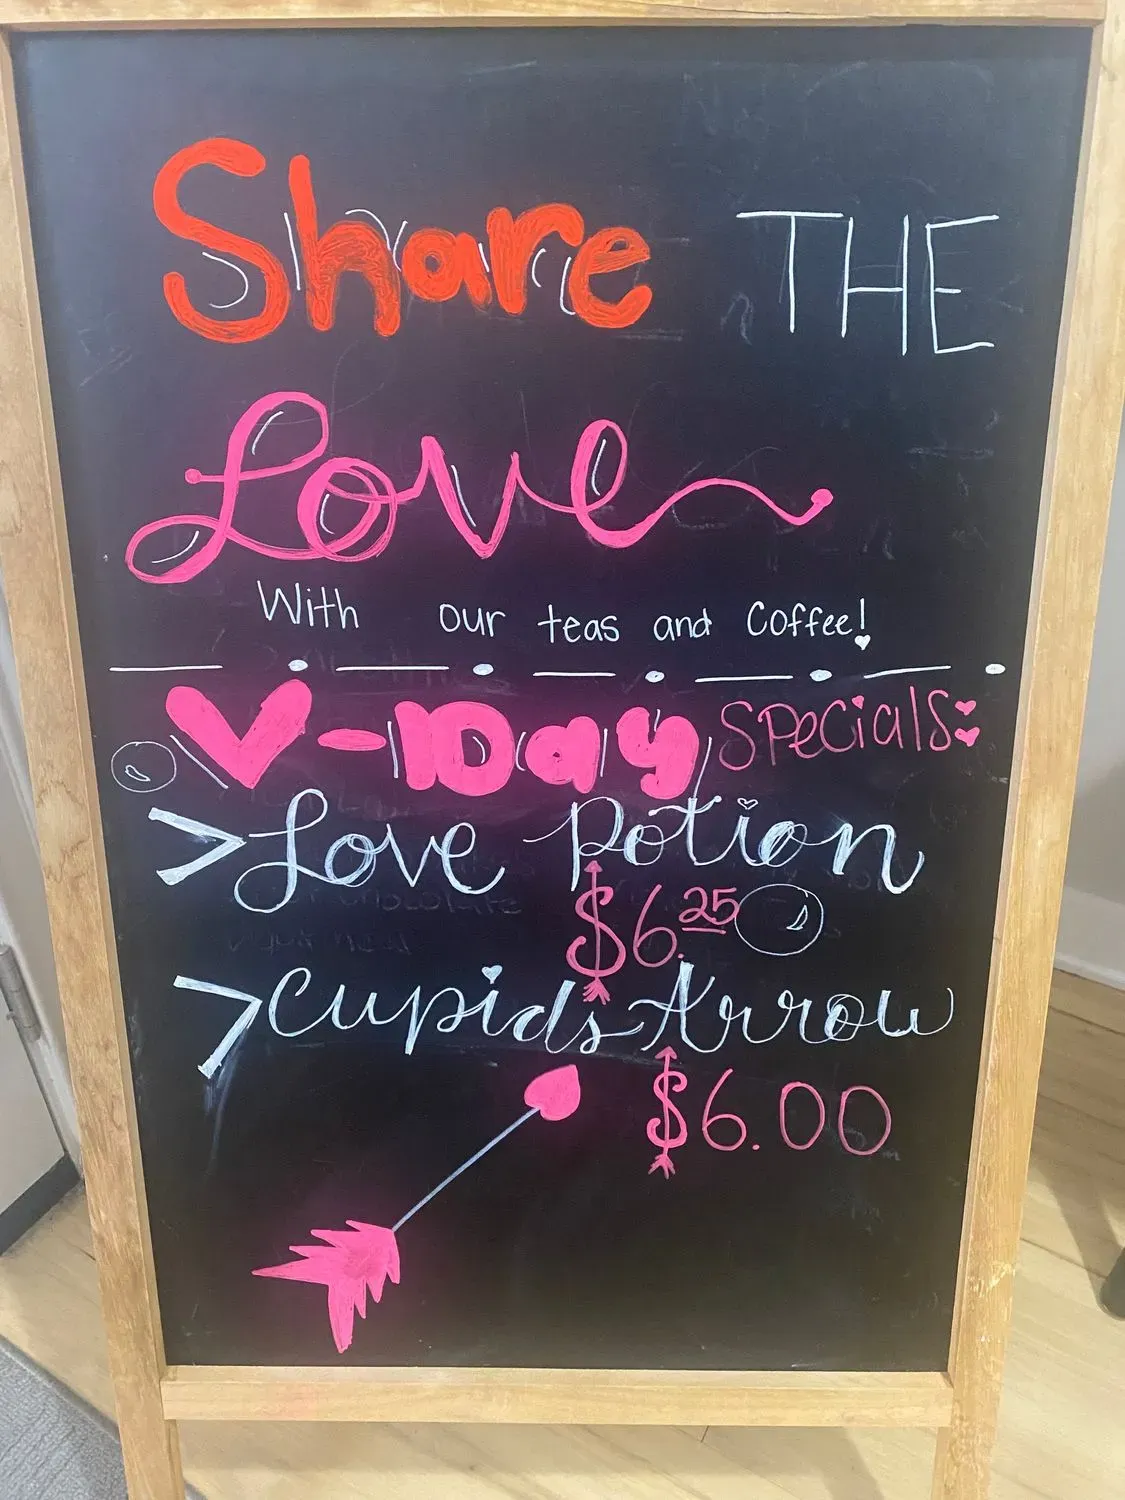 Share THE
Love
With our teas and Coffee!
V-Day Specials:
>Love Potion
$6.25
>Cupids Arrow
$6.00